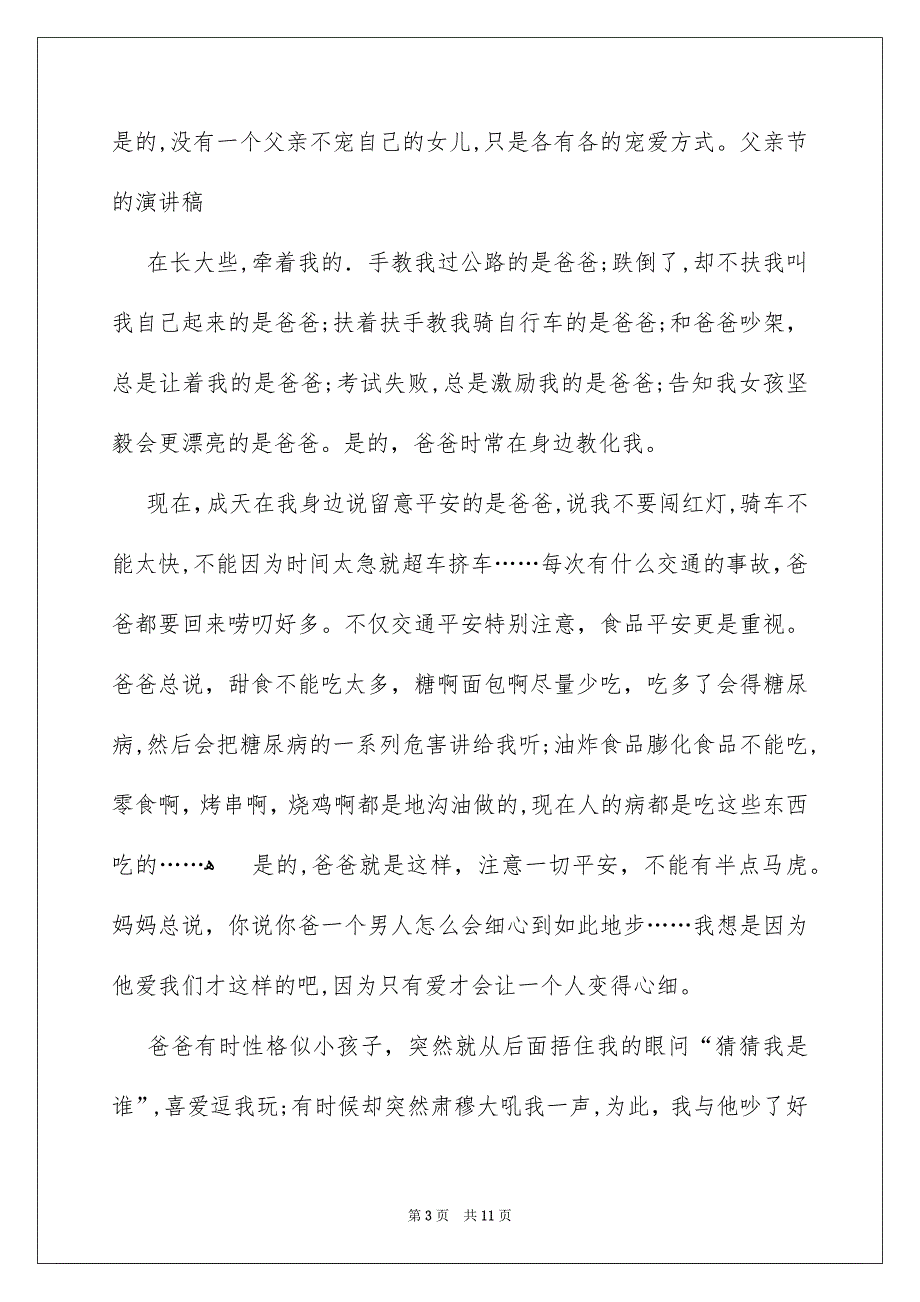 是的,没有一个父亲不宠自己的女儿,只是各有各的宠爱方式。父亲节
的演讲稿
在长大些,牵着我的．手教我过公路的是爸爸;跌倒了,却不扶我叫
我自己起来的是爸爸;扶着扶手教我骑自行车的是爸爸;和爸爸吵架，
总是让着我的是爸爸;考试失败,总是激励我的是爸爸;告知我女孩坚
毅会更漂亮的是爸爸。是的，爸爸时常在身边教化我。
现在，成天在我身边说留意平安的是爸爸,说我不要闯红灯,骑车不
能太快,不能因为时间太急就超车挤车……每次有什么交通的事故，爸
爸都要回来唠叨好多。不仅交通平安特别注意，食品平安更是重视。
爸爸总说，甜食不能吃太多，糖啊面包啊尽量少吃，吃多了会得糖尿
病,然后会把糖尿病的一系列危害讲给我听;油炸食品膨化食品不能吃,
零食啊，烤串啊，烧鸡啊都是地沟油做的,现在人的病都是吃这些东西
吃的……ﻫ 是的,爸爸就是这样，注意一切平安，不能有半点马虎。
妈妈总说，你说你爸一个男人怎么会细心到如此地步……我想是因为
他爱我们才这样的吧,因为只有爱才会让一个人变得心细。
爸爸有时性格似小孩子，突然就从后面捂住我的眼问“猜猜我是
谁”,喜爱逗我玩;有时候却突然肃穆大吼我一声,为此，我与他吵了好
第 3 页 共 11 页